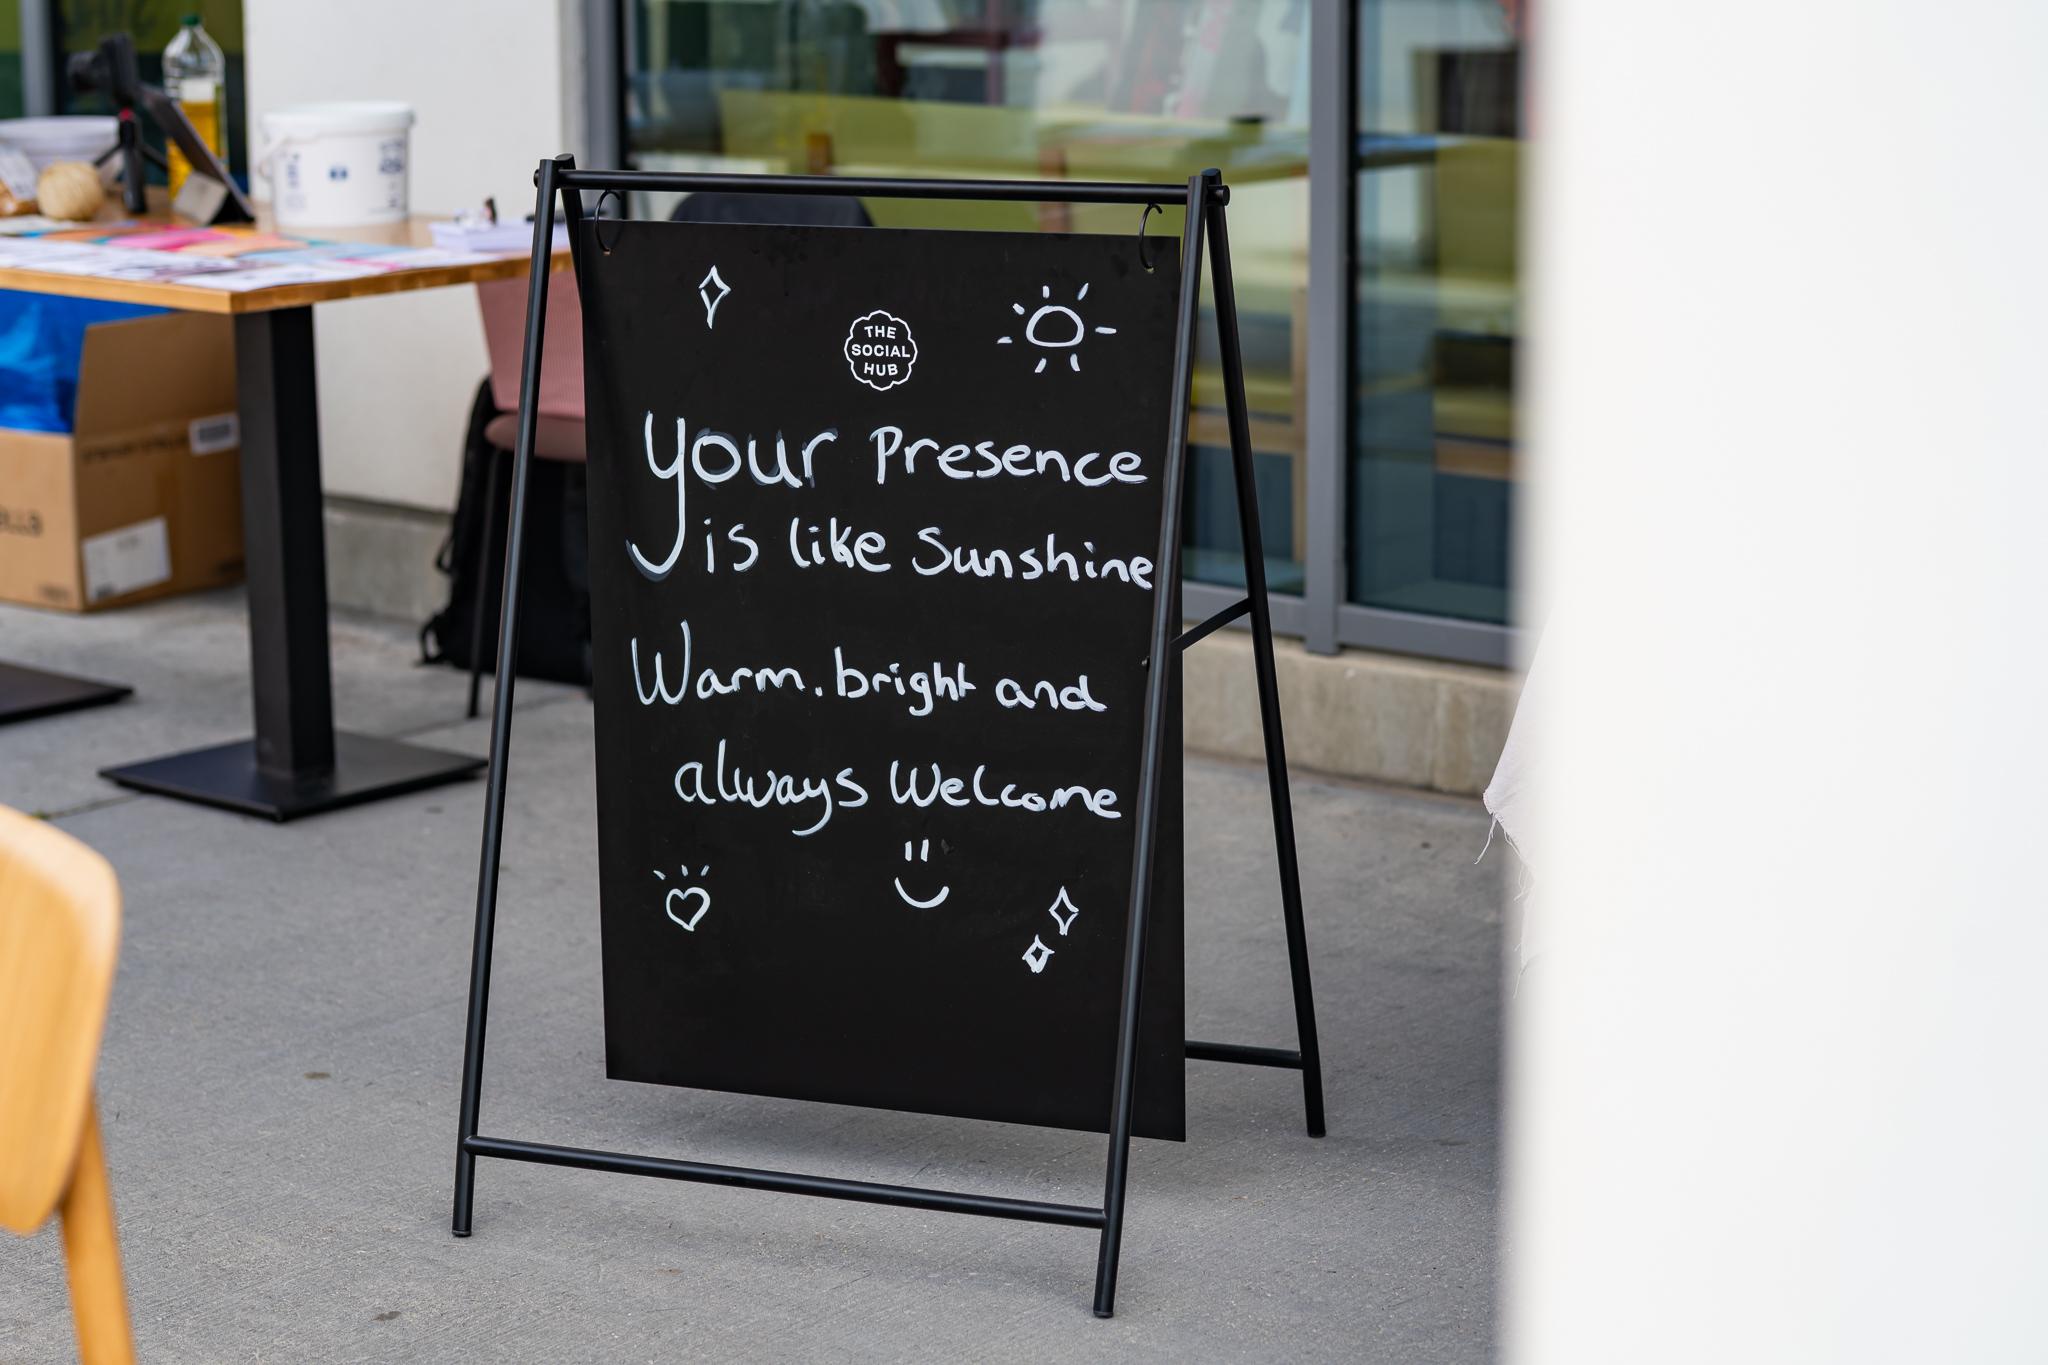 THE
SOCIAL
HUB
your Presence
is like Sunshine
Warm. bright and
always Welcome